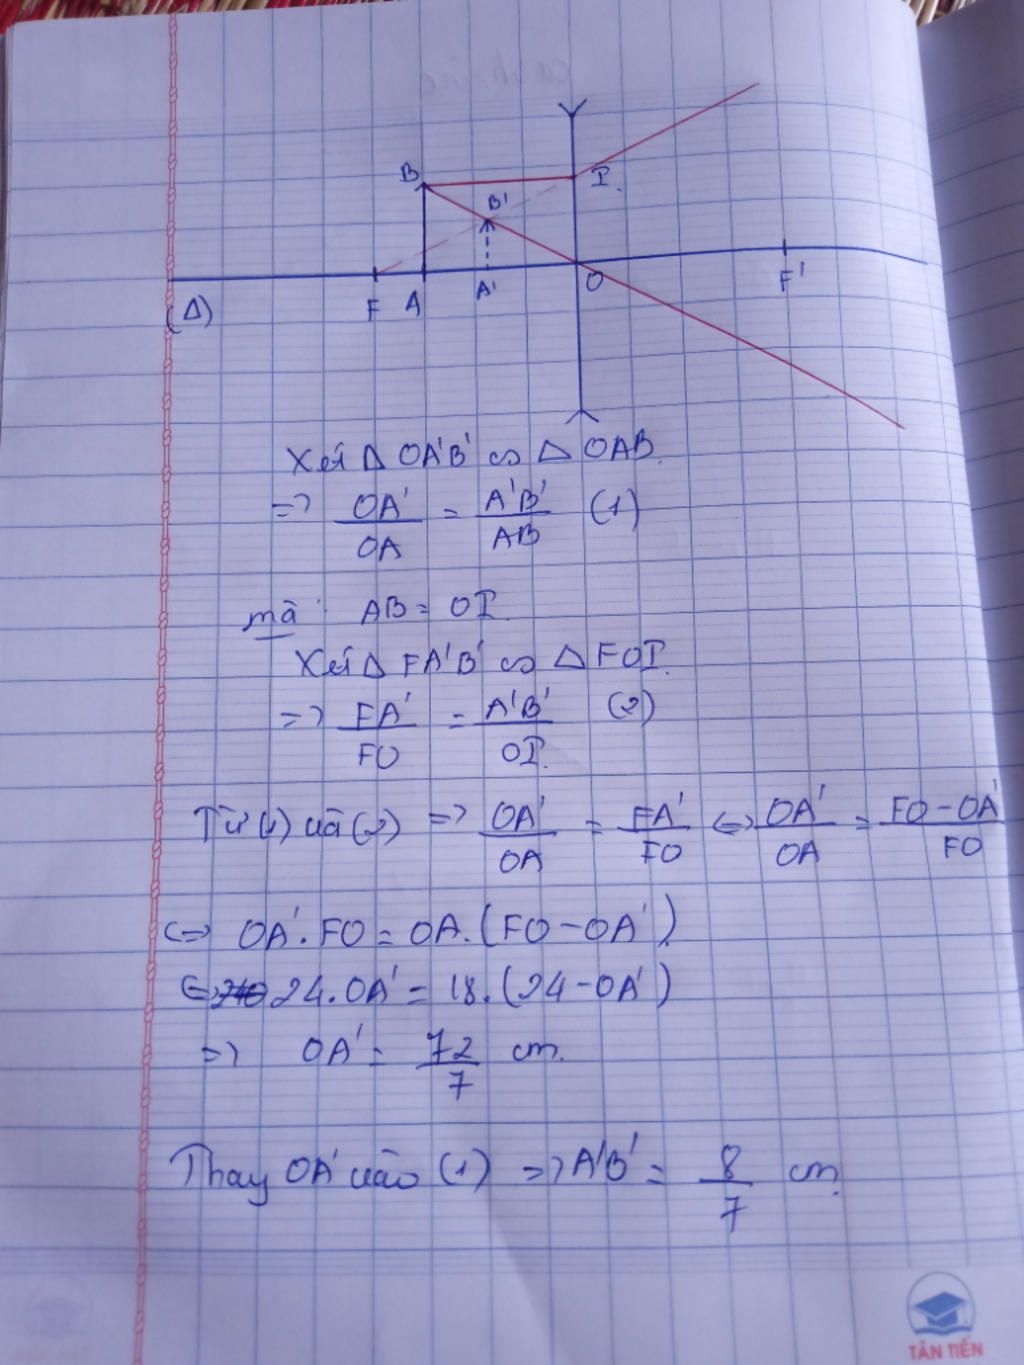 B
I
B'
(Δ)
F
A
A'
O
F'
Xét Δ OA'B' ∽ Δ OAB.
=> OA'/OA = A'B'/AB (1)
mà: AB = OI.
Xét Δ FA'B' ∽ Δ FOI.
=> FA'/FO = A'B'/OI. (2)
Từ (1) và (2) => OA'/OA = FA'/FO <=> OA'/OA = FO-OA'/FO
<=> OA'.FO = OA.(FO-OA').
<=> 24.OA' = 18.(24-OA')
=> OA' = 72/7 cm.
Thay OA' vào (1) => A'B' = 8/7 cm.
TÂN TIẾN